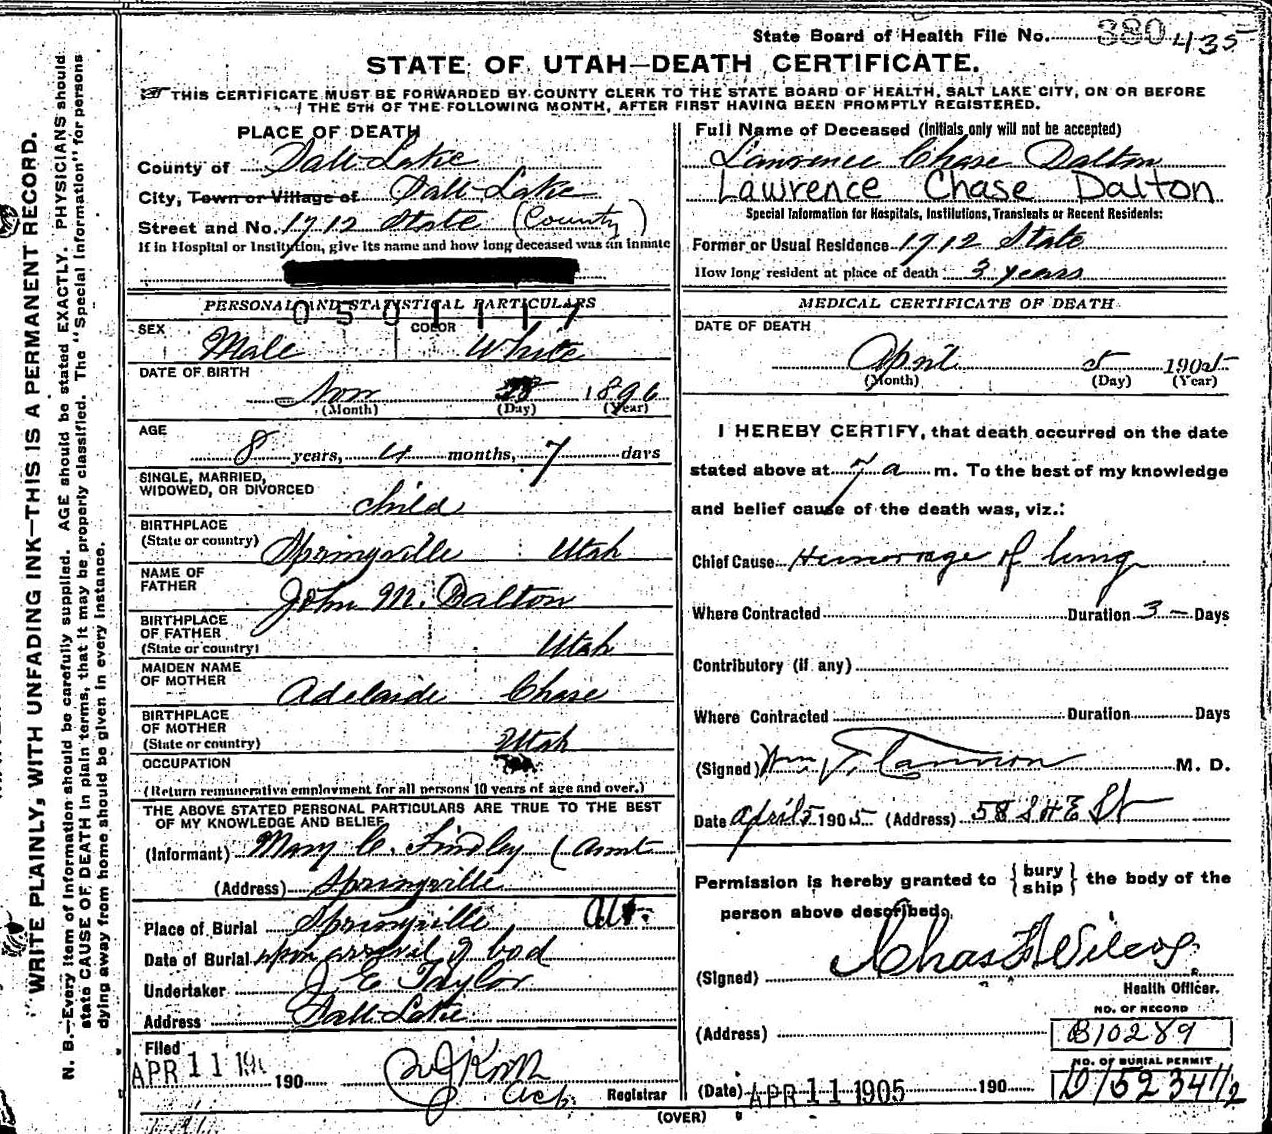 State Board of Health File No. 380 435
STATE OF UTAH—DEATH CERTIFICATE.
THIS CERTIFICATE MUST BE FORWARDED BY COUNTY CLERK TO THE STATE BOARD OF HEALTH, SALT LAKE CITY, ON OR BEFORE
THE 5TH OF THE FOLLOWING MONTH, AFTER FIRST HAVING BEEN PROMPTLY REGISTERED.
WRITE PLAINLY, WITH UNFADING INK—THIS IS A PERMANENT RECORD.
N. B.—Every item of information should be carefully supplied. AGE should be stated EXACTLY. PHYSICIANS should
state CAUSE OF DEATH in plain terms, that it may be properly classified. The "Special Information" for persons
dying away from home should be given in every instance.
PLACE OF DEATH
County of Salt Lake
City, Town or Village of Salt Lake
Street and No. 1712 State (County)
If in Hospital or Institution, give its name and how long deceased was an inmate
PERSONAL AND STATISTICAL PARTICULARS
0501117
SEX Male COLOR White
DATE OF BIRTH Nov 28 1896
(Month) (Day) (Year)
AGE 8 years, 4 months, 7 days
SINGLE, MARRIED,
WIDOWED, OR DIVORCED child
BIRTHPLACE
(State or country) Springville Utah
NAME OF
FATHER John M. Dalton
BIRTHPLACE
OF FATHER
(State or country) Utah
MAIDEN NAME
OF MOTHER Adelaide Chase
BIRTHPLACE
OF MOTHER
(State or country) Utah
OCCUPATION
(Return remunerative employment for all persons 10 years of age and over.)
THE ABOVE STATED PERSONAL PARTICULARS ARE TRUE TO THE BEST
OF MY KNOWLEDGE AND BELIEF
(Informant) Mary C. Findley (Aunt
(Address) Springville
Place of Burial Springville Ut.
Date of Burial upon arrival of bod
Undertaker J E Taylor
Address Salt Lake
Filed
APR 11 190 190
Registrar
Full Name of Deceased (Initials only will not be accepted)
Lawrence Chase Dalton
Lawrence Chase Dalton
Special Information for Hospitals, Institutions, Transients or Recent Residents:
Former or Usual Residence 1712 State
How long resident at place of death 3 years
MEDICAL CERTIFICATE OF DEATH
DATE OF DEATH
April 5 1905
(Month) (Day) (Year)
I HEREBY CERTIFY, that death occurred on the date
stated above at 7 a m. To the best of my knowledge
and belief cause of the death was, viz.:
Chief Cause Hemorrage of lung
Where Contracted Duration 3 — Days
Contributory (if any)
Where Contracted Duration Days
(Signed) Wm T. Cannon M. D.
Date April 5 1905 (Address) 58 S H E St
Permission is hereby granted to {bury
ship} the body of the
person above described.
(Signed) Chas F Wilcox
Health Officer.
NO. OF RECORD
(Address) B10289
NO. OF BURIAL PERMIT
(Date) APR 11 1905 190 D152341/2
(OVER)